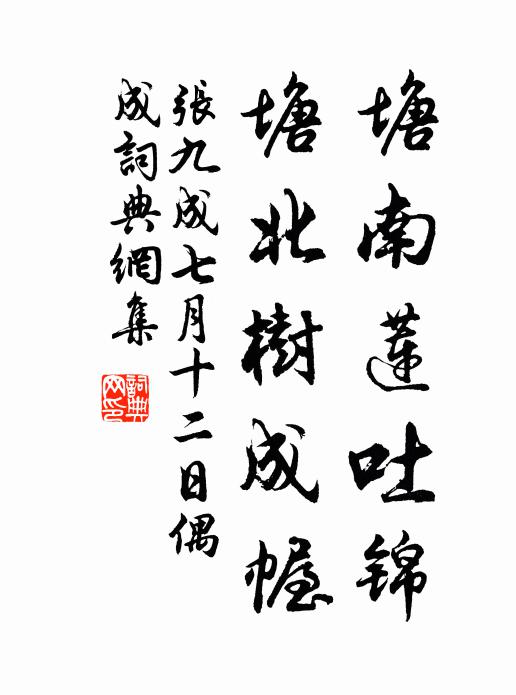 塘南蓮吐錦
塘北樹成幄
張九成七月十二日偶
成詞典網集
詞典
网印